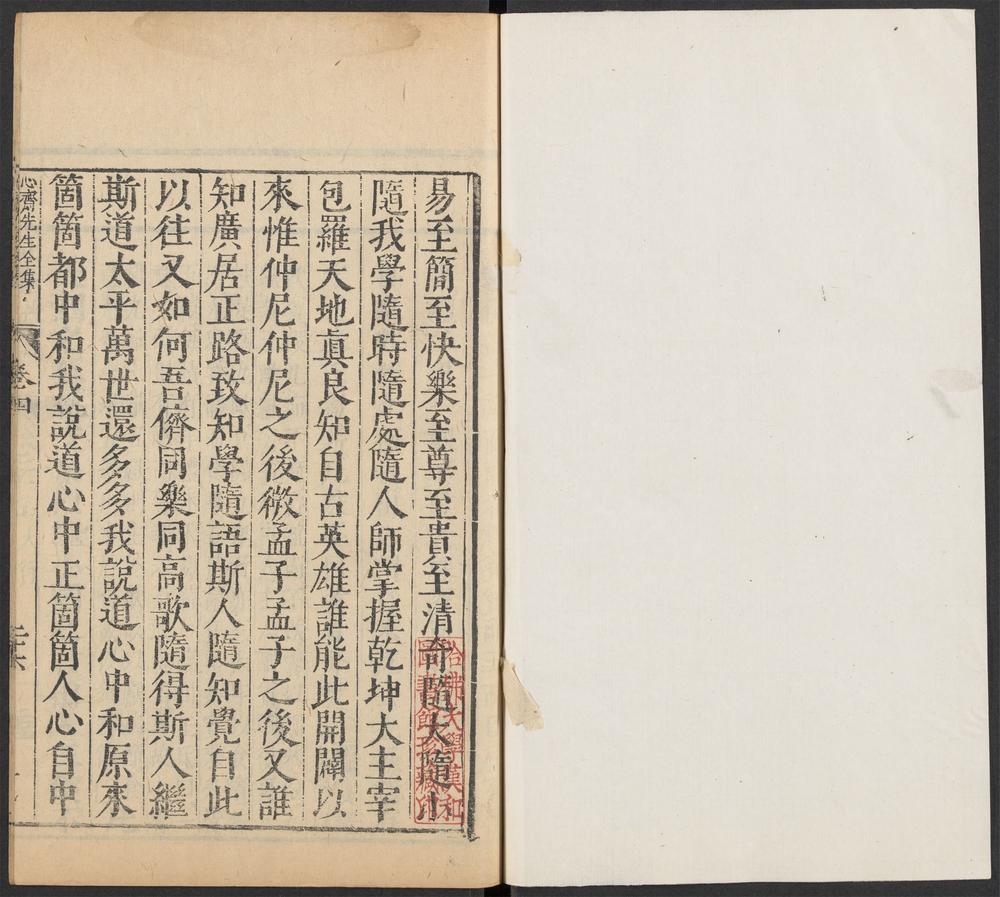 易至簡至快樂至尊至貴至清奇隨大隨小
隨我學隨時隨處隨人師掌握乾坤大主宰
包羅天地眞良知自古英雄誰能此開闢以
來惟仲尼仲尼之後微孟子孟子之後又誰
知廣居正路致知學隨語斯人隨知覺自此
以往又如何吾儕同樂同高歌隨得斯人繼
斯道太平萬世還多多我說道心中和原來
箇箇都中和我說道心中正箇箇人心自中
心齋先生全集
卷四
哈佛大學漢和
圖書館珍藏印